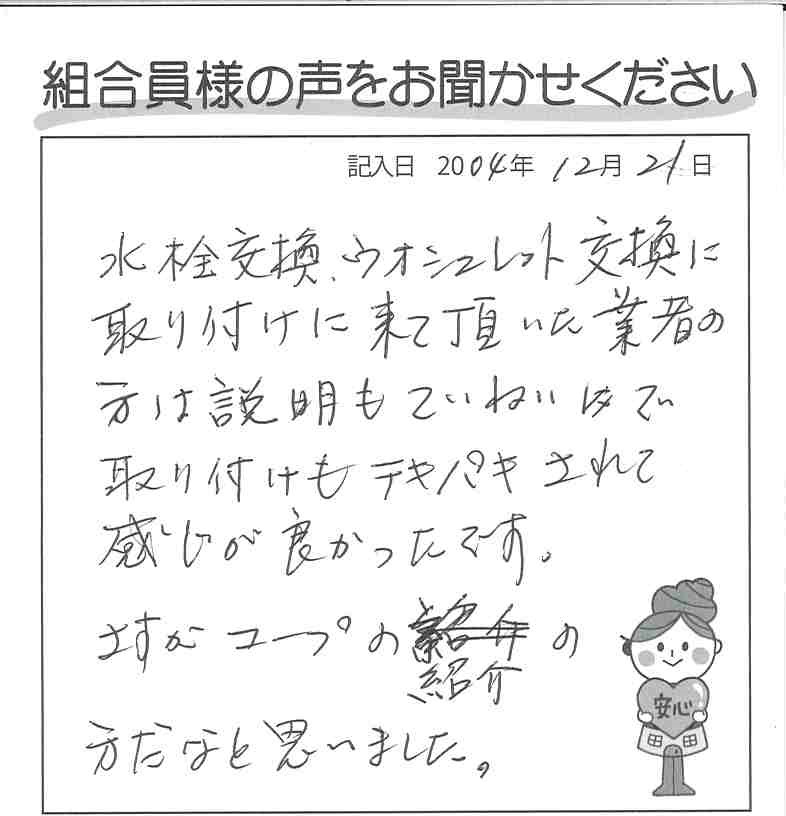 組合員様の声をお聞かせください
記入日 2004年 12月 21日
水栓交換、ウオシュレット交換に
取り付けに来て頂いた業者の
方は説明もていねいで
取り付けもテキパキされて
感じが良かったです。
さすがコープの紹介の
紹介
方だなと思いました。
安心